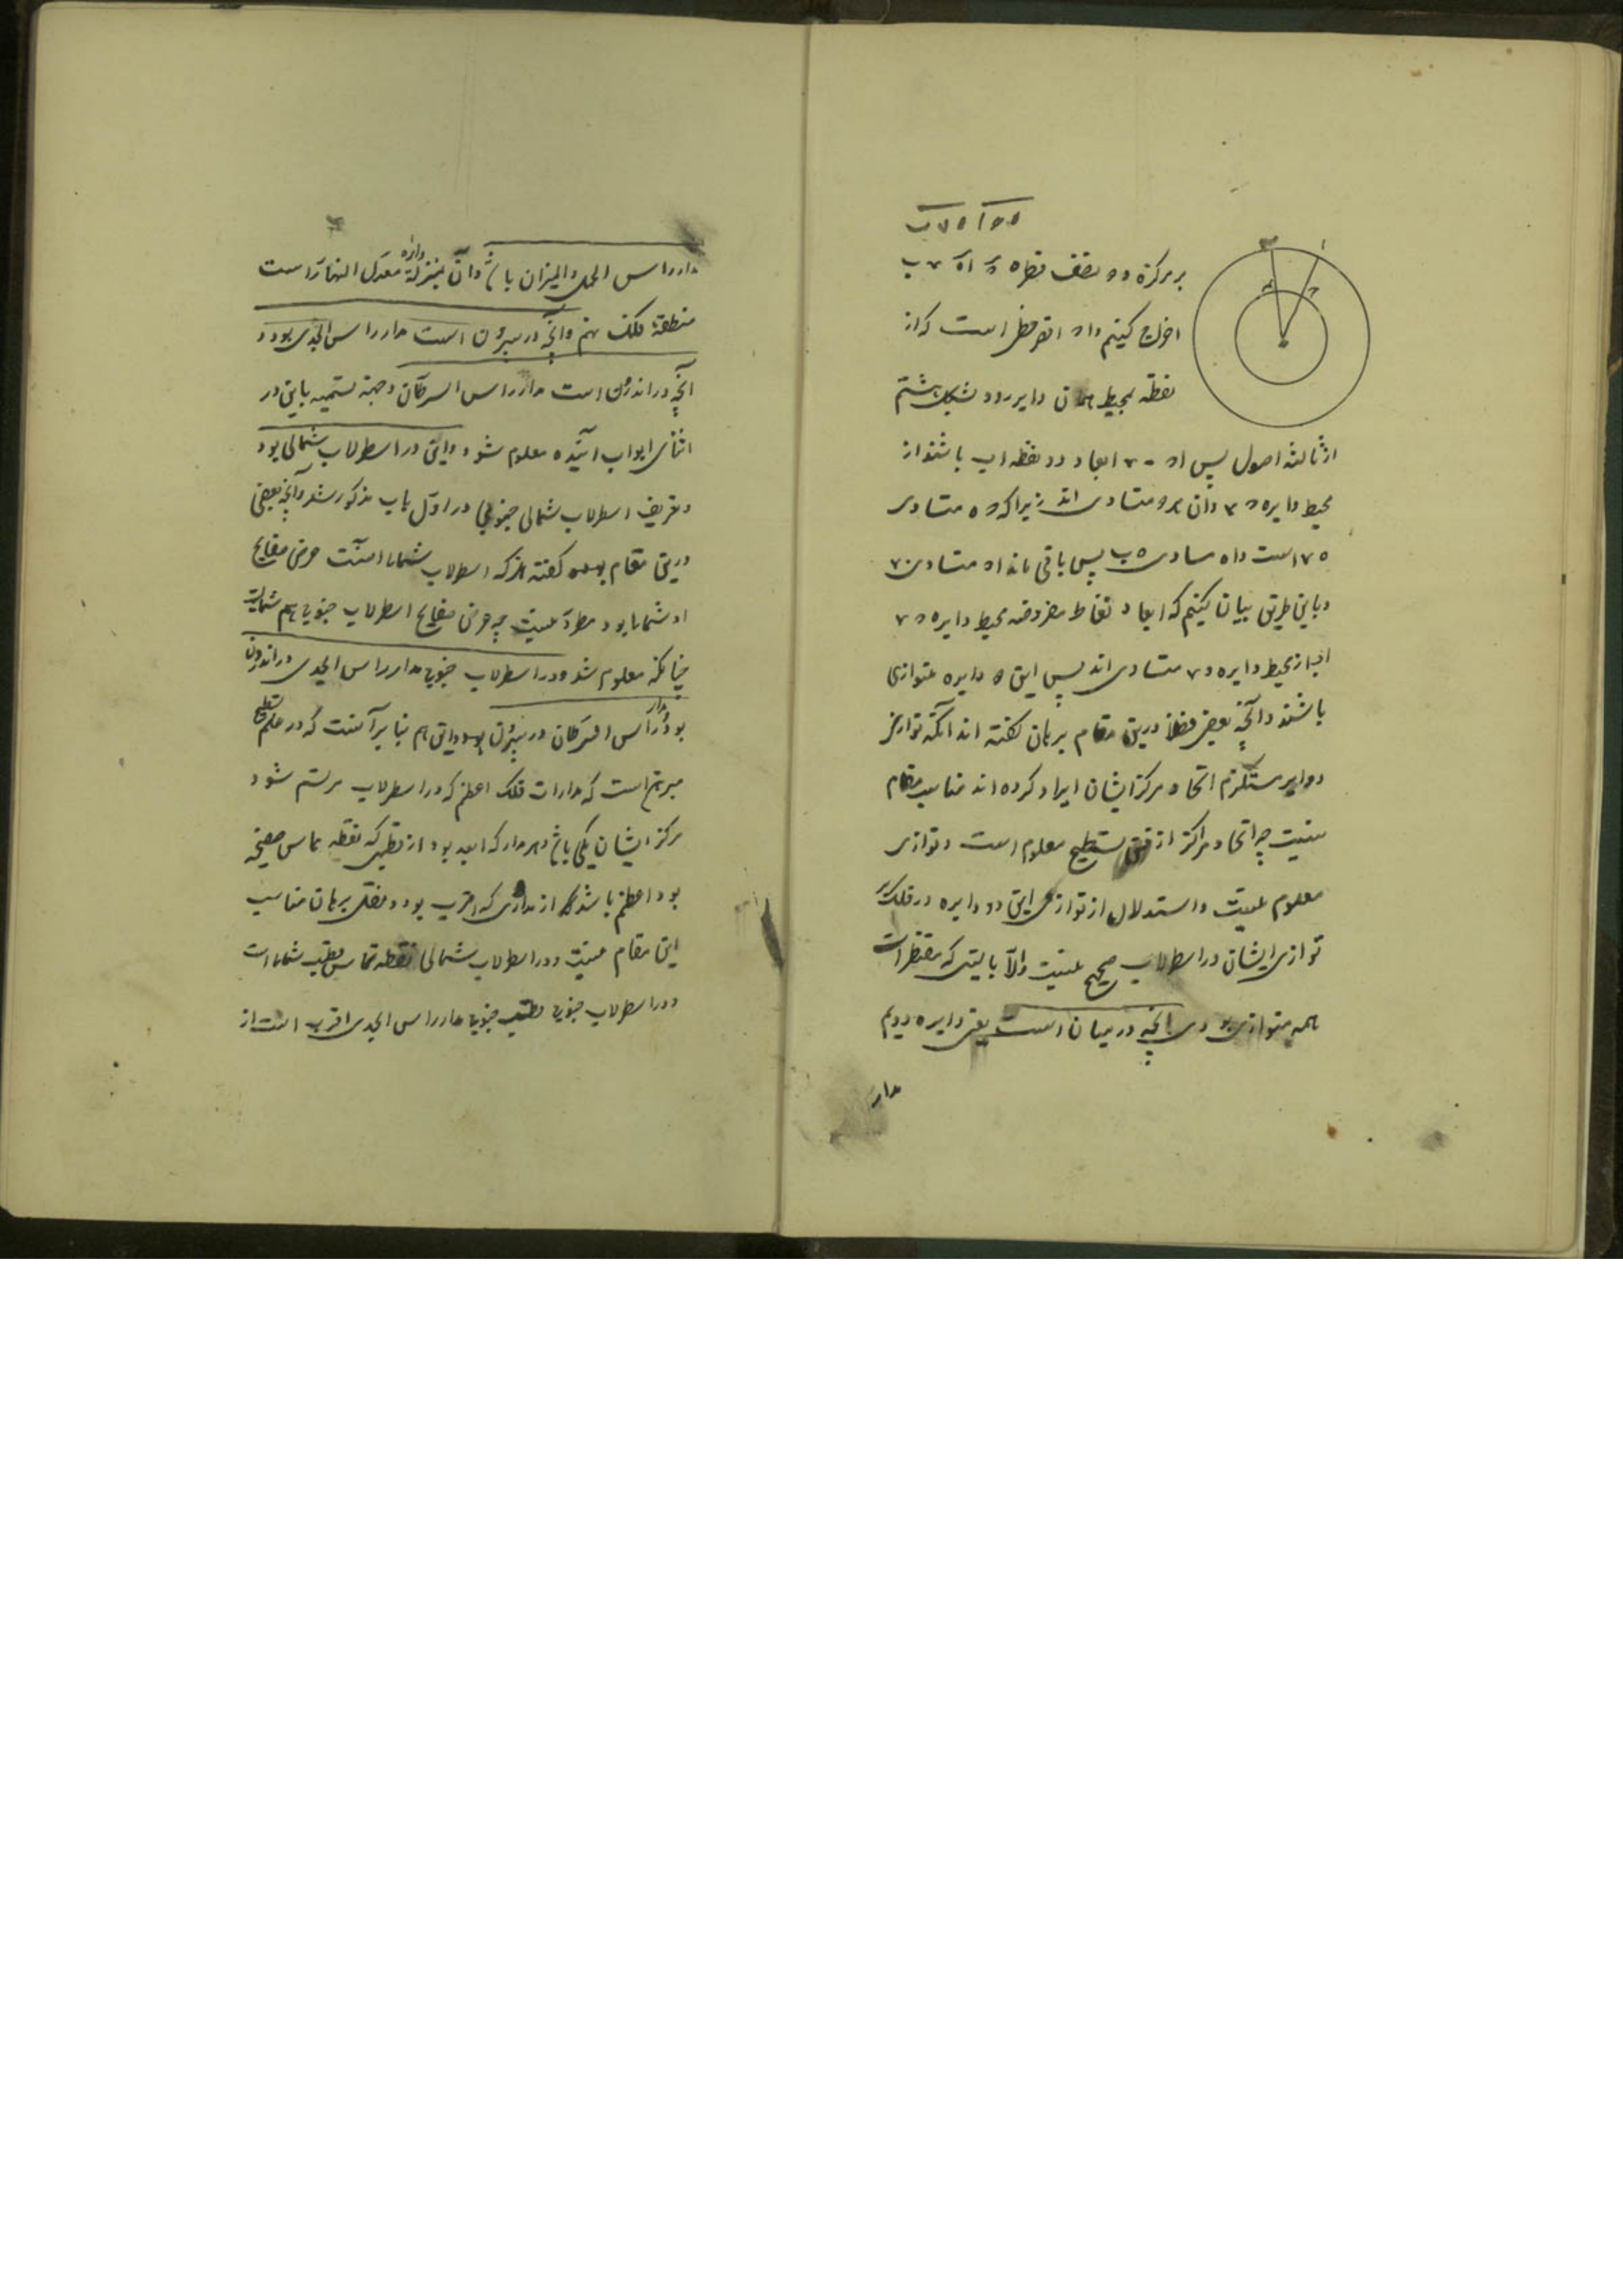 بر مرکز ه و نصف قطر ه
اخراج کنیم و ا د اقصر خطی است که از
نقطه بمحیط همان دایره رود بشکل هشتم
از ثالثه اصول پس ا د ابعاد دو نقطه ا ب باشند از
محیط دایره و آن هر دو متساوی اند زیرا که متساوی
است و ا ه مساوی ه ب پس باقی ماند ا د متساوی
و باین طریق بیان کنیم که ابعاد نقاط مفروضه محیط دایره
از محیط دایره متساوی اند پس این دایره متوازی
باشند و آنچه بعضی فضلا درین مقام برهان گفته اند آنکه توازی
دوایر مستلزم اتحاد مرکز ایشان ایراد کرده اند مناسب مقام
نیست چه اتحاد مراکز از فن تسطیح معلوم است و توازی
معلوم نیست و استدلال از توازی این دو دایره در فلک بر
توازی ایشان در اسطرلاب صحیح نیست والا بایستی که مقنطرات
همه متوازی بودی آنچه در میان است یعنی دایره دویم
مدار
مدار راس الحمل و المیزان باشد و آن بمنزلهٔ دایره معدل النهار است
منطقهٔ فلک نهم و آنچه در بیرون است مدار راس الجدی بود و
آنچه در اندرون است مدار راس السرطان و جهة تسمیه باین در
اثنای ابواب آینده معلوم شود و این در اسطرلاب شمالی بود
و تعریف اسطرلاب شمالی و جنوبی در اول باب مذکور شد و آنچه بعضی
درین مقام گفته اند که اسطرلاب شمالی آنست که عرض صفایح
او شمالی بود مطرد نیست چه عرض صفایح اسطرلاب جنوبی هم شمالیست
چنانکه معلوم شد و در اسطرلاب جنوبی مدار راس الجدی در اندرون
بود و مدار راس السرطان در بیرون بود و این هم بنا بر آنست که در علم تسطیح
مبرهن است که مدارات فلک اعظم که در اسطرلاب مرتسم شود
مرکز ایشان یکی باشد و هر مدار که ابعد بود از قطبی که نقطه تماس صفیحه
بود اعظم باشد از مداری که اقرب بود و نقل برهان مناسب
این مقام نیست و در اسطرلاب شمالی نقطه تماس قطب شمالی است
و در اسطرلاب جنوبی قطب جنوبی مدار راس الجدی اقرب است از